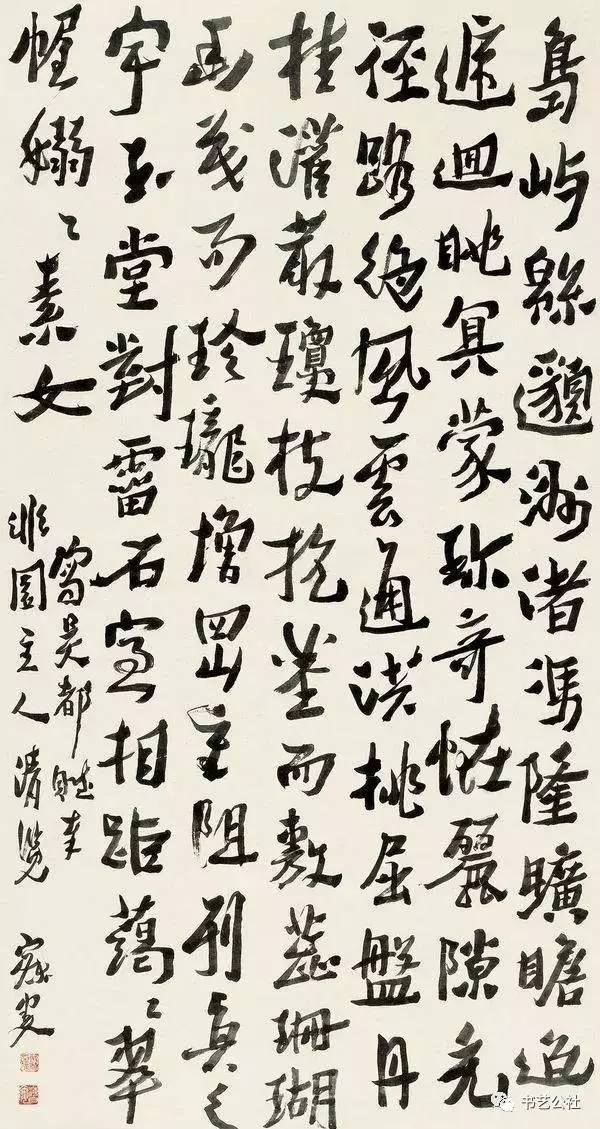 島嶼緜邈洲渚馮隆曠瞻迢
遞迴眺冥蒙珎奇怪麗隙充
徑路絕風雲通洪桃屈盤丹
桂灌叢瓊枝抗莖而敷蕊珊瑚
幽茂而玲瓏增岡重阻列真之
宇玉堂對霤石室相距藹〻翠
幄嫋〻素女
寫吳都賦奉
園主人清覽
寐叟
书艺公社